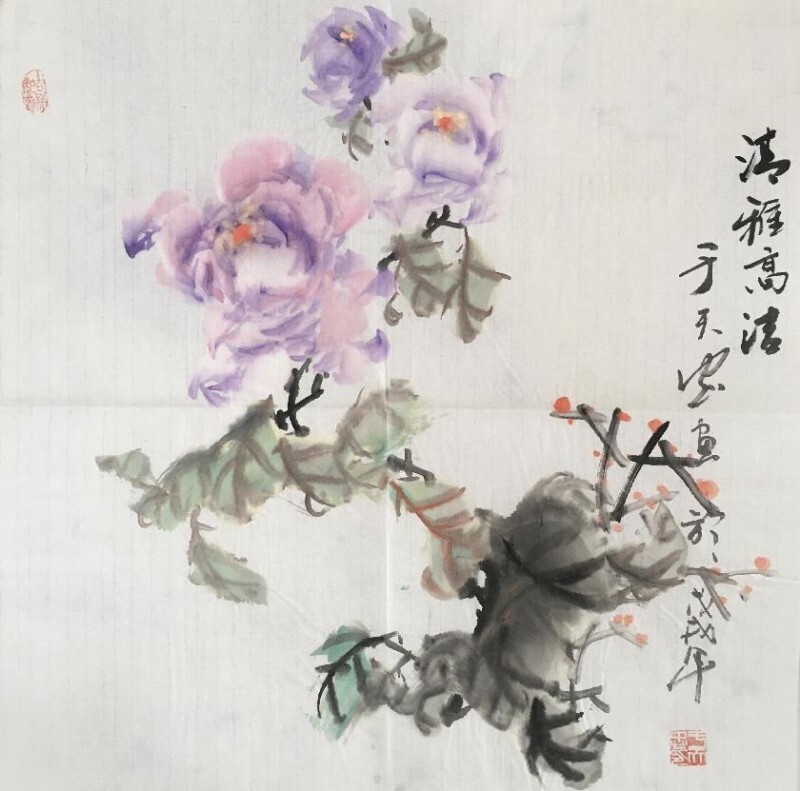 清雅高洁
于天宏画于戊戌年